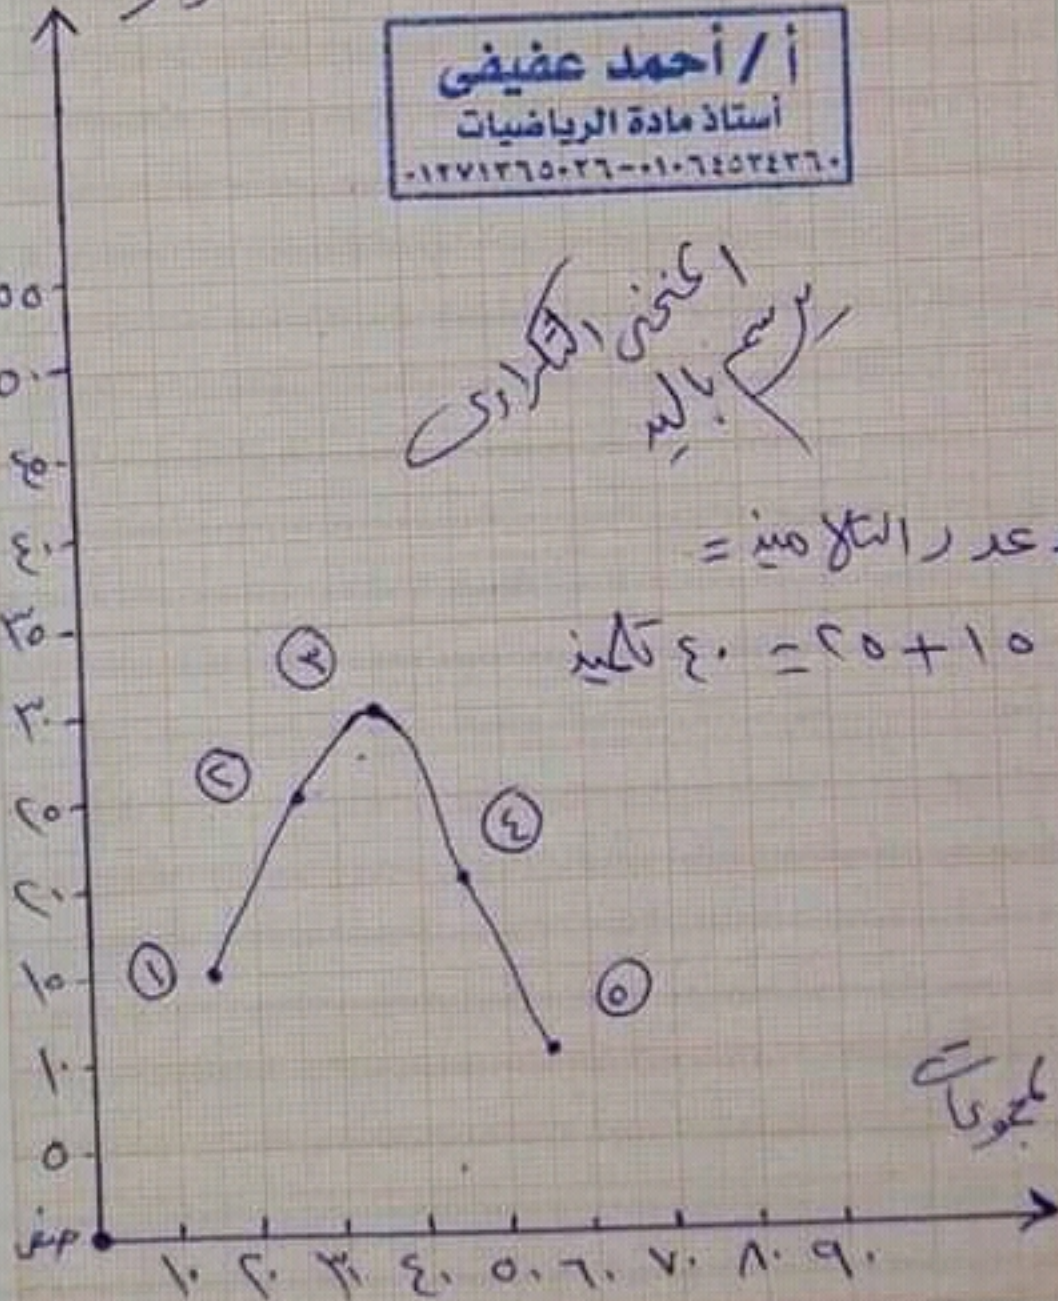 أ / أحمد عفيفى
أستاذ مادة الرياضيات
٠١٢٧١٣٦٥٠٢٦-٠١٠٦٤٥٣٤٣٦٠
المنحنى التكرارى
يرسم باليد
عدد التلاميذ =
١٥ + ٢٥ = ٤٠ تلميذ
٥٥
٥٠
٤٥
٤٠
٣٥
٣٠
٢٥
٢٠
١٥
١٠
٥
صفر
١
٢
٣
٤
٥
مجموعات
١٠ ٢٠ ٣٠ ٤٠ ٥٠ ٦٠ ٧٠ ٨٠ ٩٠